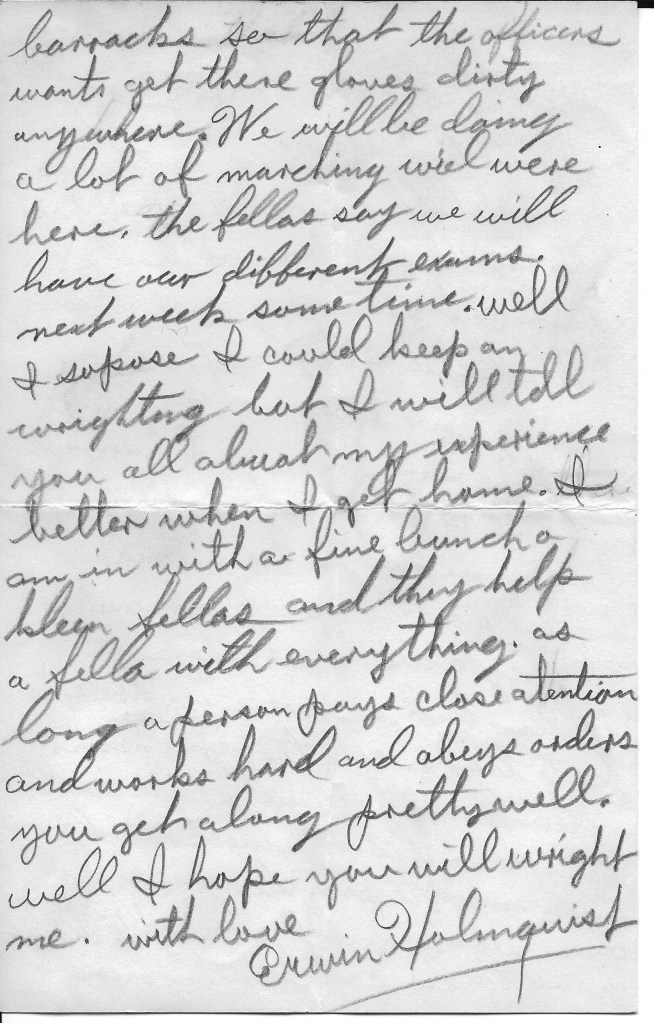 barracks so that the officers
wants get there gloves dirty
anywhere. We will be doing
a lot of marching wiel were
here. the fellas say we will
have our different exams.
next week some time. well
I sopose I could keep on
wrighting but I will tell
you all about my experience
better when I get home. I
am in with a fine bunch o
kleen fellas and they help
a fella with everything. as
long a person pays close atention
and works hard and obeys orders
you get along pretty well.
well I hope you will wright
me. with love
Erwin Holmquist